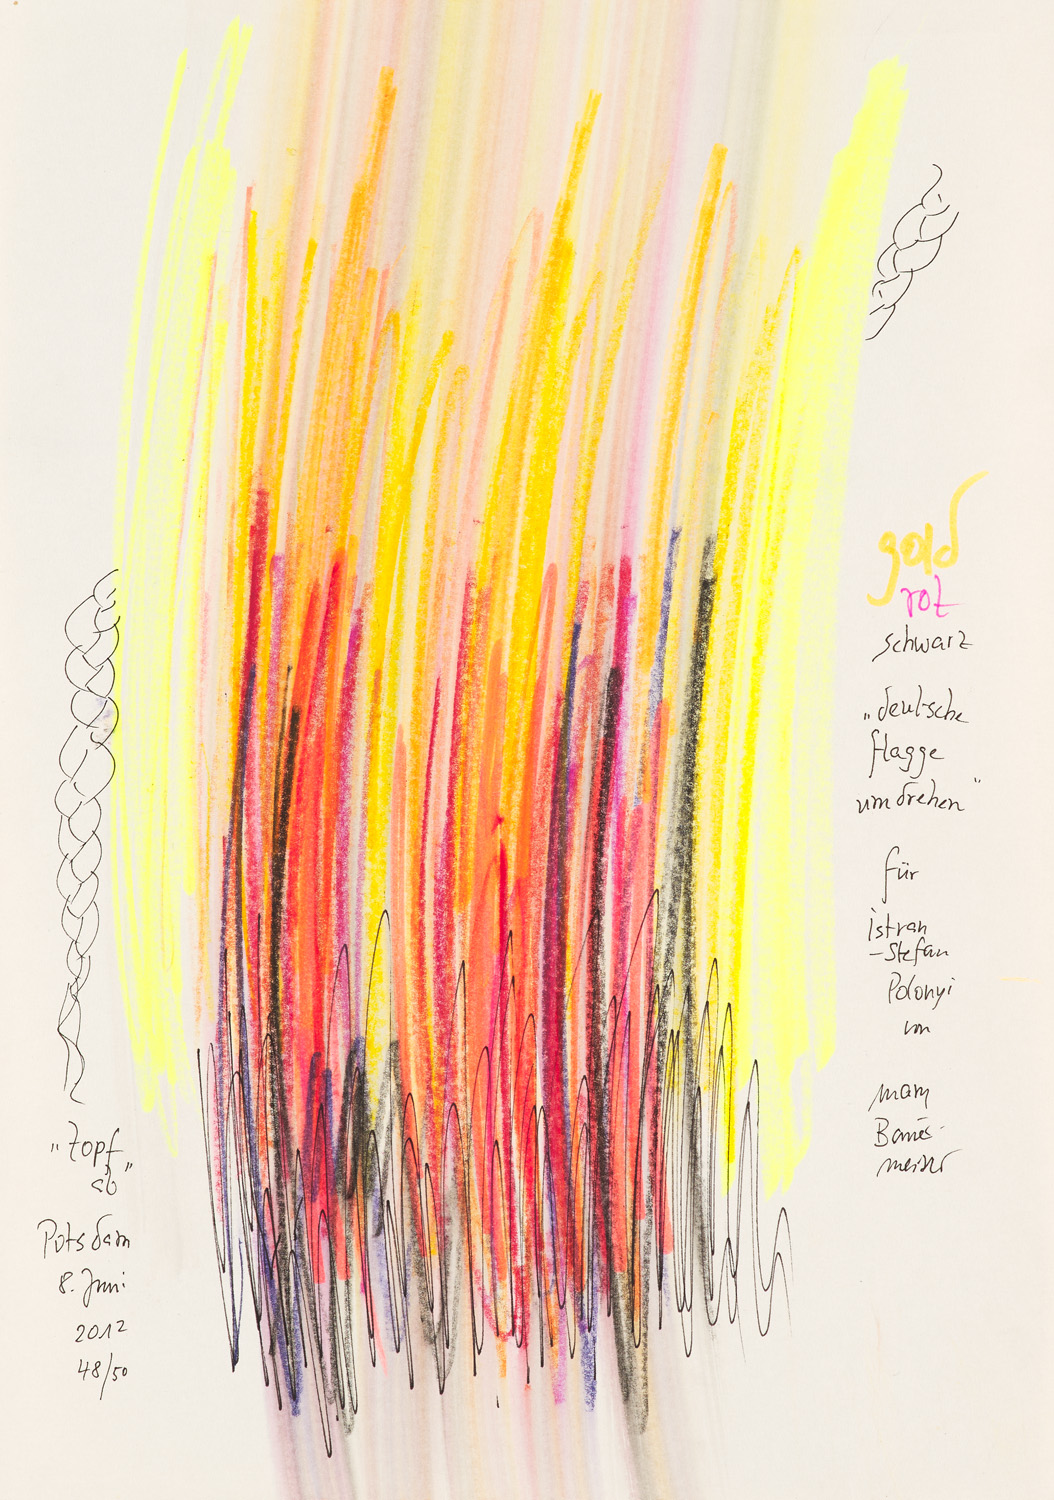 gold
rot
schwarz
„deutsche
flagge
umdrehen"
für
istvan
-Stefan
Polonyi
von
mary
Bau
meister
„Zopf
ab"
Potsdam
8. Juni
2012
48/50